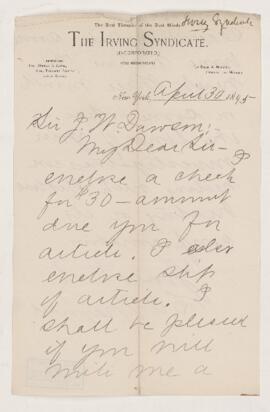 The Best Thoughts of the Best Minds
Irving Syndicate
THE IRVING SYNDICATE.
(INCORPORATED)
New York, April 30 1895
Sir J. W. Dawson;
My Dear Sir - I
enclose a check
for $30 - amount
due you for
article. I also
enclose slip
of article. I
shall be pleased
if you will
write me a